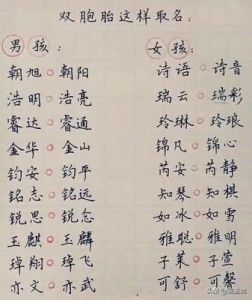 双胞胎这样取名:
男孩:
朝旭 朝阳
浩明 浩亮
睿达 睿通
金华 金山
钧安 钧平
铭志 铭远
锐思 锐志
王麒 王麟
瑋翔 瑋飞
亦文 亦武
女孩:
诗语 诗音
瑞云 瑞彩
玲琳 玲琅
锦凡 锦心
芮安 芮静
知琴 知棋
如冰 如雪
雅聪 雅明
子茉 子萱
可舒 可馨